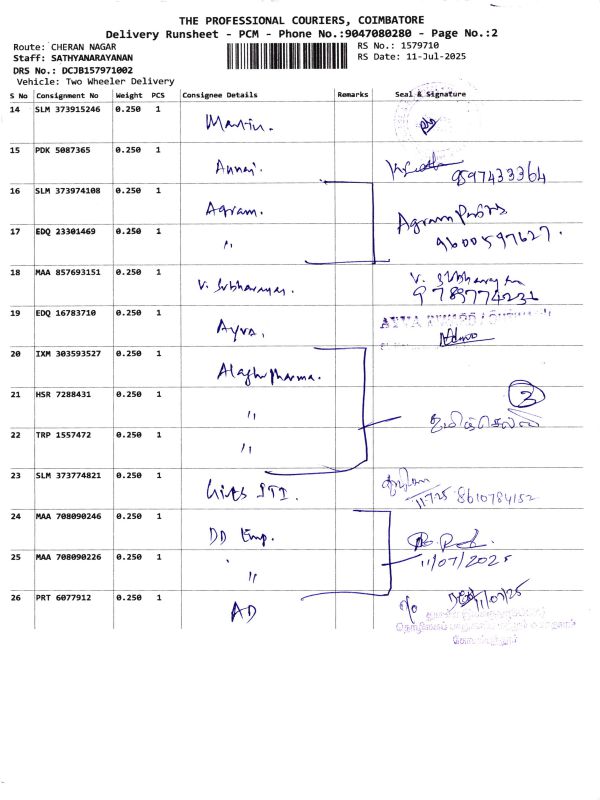 THE PROFESSIONAL COURIERS, COIMBATORE
Delivery Runsheet - PCM - Phone No.:9047080280 - Page No.:2
Route: CHERAN NAGAR
RS No.: 1579710
Staff: SATHYANARAYANAN
RS Date: 11-Jul-2025
DRS No.: DCJB157971002
Vehicle: Two Wheeler Delivery
S No Consignment No Weight PCS Consignee Details Remarks Seal & Signature
14 SLM 373915246 0.250 1
15 PDK 5087365 0.250 1 Annai. 9597433364
16 SLM 373974108 0.250 1 Agram. Agram
17 EDQ 23301469 0.250 1 " 9600597627.
18 MAA 857693151 0.250 1 V. Subharayan. V. Subharayan
9789774231
19 EDQ 16783710 0.250 1 Ayva.
20 IXM 303593527 0.250 1 Alaghu pharma.
21 HSR 7288431 0.250 1 " 3
தமிழ்செல்வி
22 TRP 1557472 0.250 1 "
23 SLM 373774821 0.250 1 ITI. 11-7-25 8610784152
24 MAA 708090246 0.250 1 DD Emp.
25 MAA 708090226 0.250 1 " 11/07/2025
26 PRT 6077912 0.250 1 AD 11/07/25